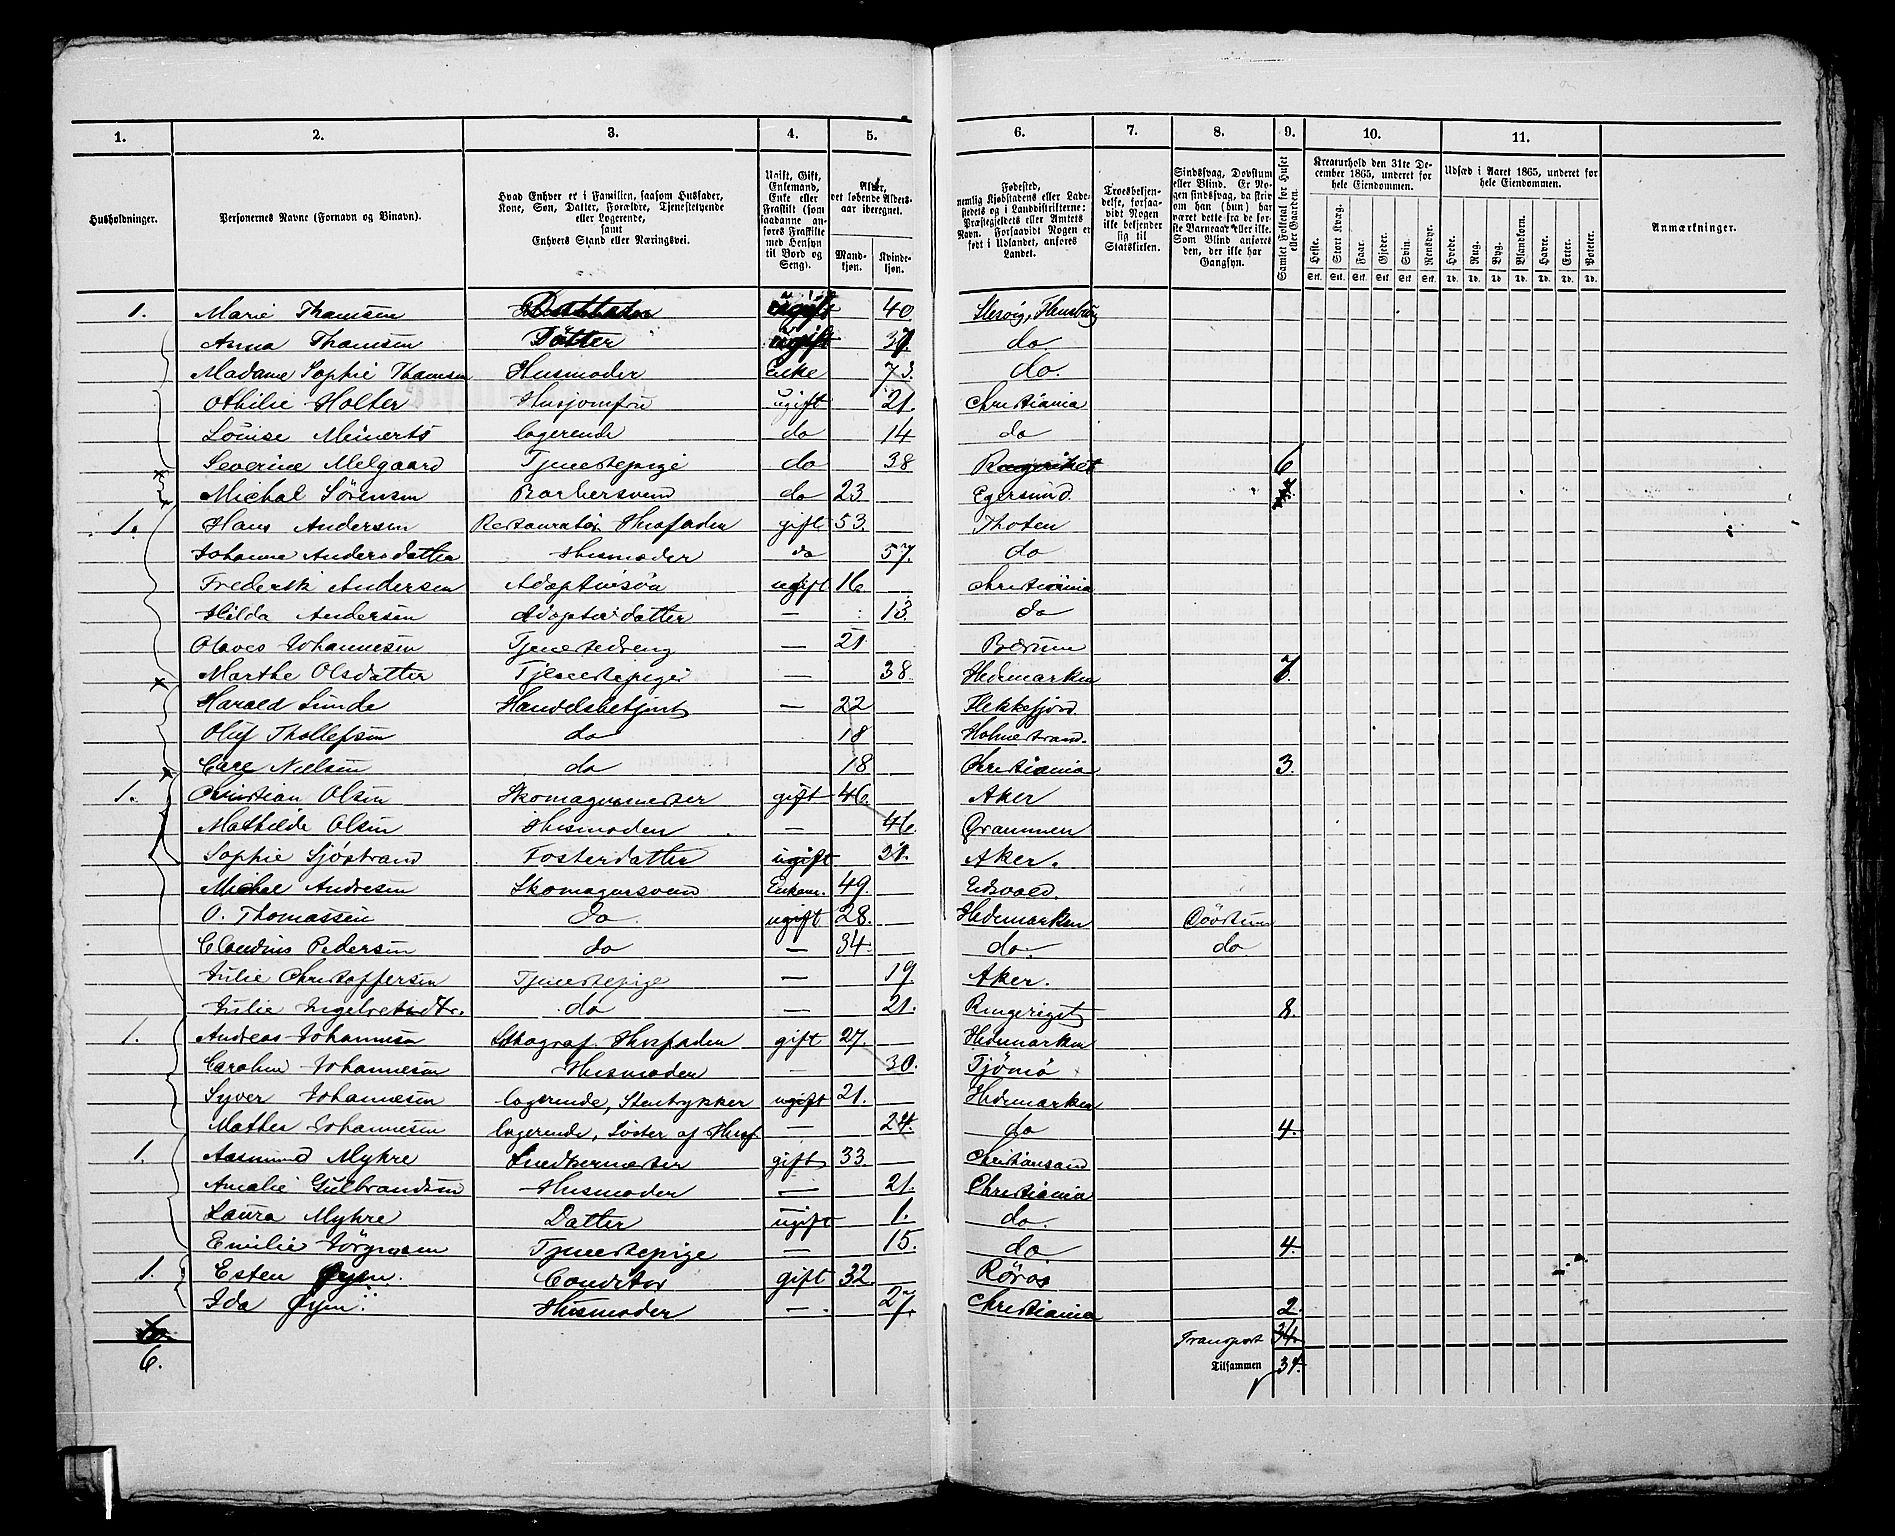 1. 2. 3. 4. 5. 6. 7. 8. 9. 10. 11.
Husholdninger.
Personernes Navne (Fornavn og Binavn).
Hvad Enhver er i Familien, saasom Husfader, Kone, Søn, Datter, Forældre, Tjenestetyende eller Logerende, samt Enhvers Stand eller Næringsvei.
Ugift, Gift, Enkemand, Enke eller Fraskilt (som saadanne anføres Fraskilte med Hensyn til Bord og Seng).
Alder, det løbende Alders-aar iberegnet.
Mand-kjøn. Kvinde-kjøn.
Fødested, nemlig Kjøbstadens eller Ladestedets og i Landdistrikterne: Præstegjeldets eller Amtets Navn. Forsaavidt Nogen er født i Udlandet, anføres Landet.
Troesbekjendelse, forsaavidt Nogen ikke bekjender sig til Statskirken.
Sindssvag, Døvstum eller Blind. Er Nogen sindssvag, da striv om han (hun) har været dette fra de første Barneaar eller ikke. Som Blind anføres den, der ikke har Gangsyn.
Samlet Folketal for Huset eller Gaarden.
Kreaturhold den 31te December 1865, underet for hele Eiendommen.
Heste. Stort Kvæg. Faar. Gjeder. Svin. Rensdyr.
Stk. Stk. Stk. Stk. Stk. Stk.
Udsæd i Aaret 1865, underet for hele Eiendommen.
Hvede. Rug. Byg. Blandkorn. Havre. Erter. Poteter.
Td. Td. Td. Td. Td. Td. Td.
Anmærkninger.
1. Marie Thamsen ugift 40 Slesvig, Flensburg
Anna Thamsen Datter ugift 37. do.
Madame Sophie Thamsen Husmoder Enke 73. do.
Othilie Holter Husjomfru ugift 21. Christiania
Louise Meinerts logerende do 14 do
Severine Melgaard Tjenestepige do 38 Ringeriket 6
Michal Sørensen Barbersvend do 23 Egersund.
1. Hans Andersen Restauratør Husfaden gift 53. Thoten
Johanne Andersdatter Husmoder do 57. do
Frederik Andersen Adoptivsøn ugift 16 Christiania
Hilda Andersen Adoptivdatter — 13. do
Olaves Johannesen Tjenestedreng — 21 Bærum
Marthe Olsdatter Tjenestepige — 38. Hedemarken 7.
Harald Sunde Handelsbetjent — 22 Flekkefjord
Oluf Thollefsen do 18 Holmestrand.
Carl Nielsen do 18 Christiania 3.
1. Christian Olsen Skomagermester gift 46. Aker
Mathilde Olsen Husmoden — 46. Drammen
Sophie Sjöstrand Fosterdatter ugift 21. Aker.
Michel Andresen Skomagersvend Enkem. 49. Eidsvold.
O. Thomassen do. ugift 28. Hedemarken Døvstum
Claudius Pedersen do — 34. do. do
Julie Christoffersen Tjenestepige — 19. Aker.
Julie Ingebretsdtr. do — 21. Ringeriget 8.
1. Andreas Johannesen Lithograf. Husfaden gift 27. Hedemarken
Caroline Johannesen Husmoden — 30. Tjömö
Syver Johannesen logerende, Stentrykker ugift 21. Hedemarken
Mathea Johannesen logerende, Søster af Husf. — 24. do 4.
1. Aasmund Myhre Snedkermester gift 33. Christiansand
Amalie Gulbrandsen Husmoder — 21. Christiania
Laura Myhre Datter ugift 1. do.
Emilie Jörgensen Tjenestepige — 15. do 4.
1. Esten Øyen. Conditor gift 32. Röros
Ida Øyen Husmoder — 27. Christiania 2.
6. Transport 34.
Tilsammen 34.